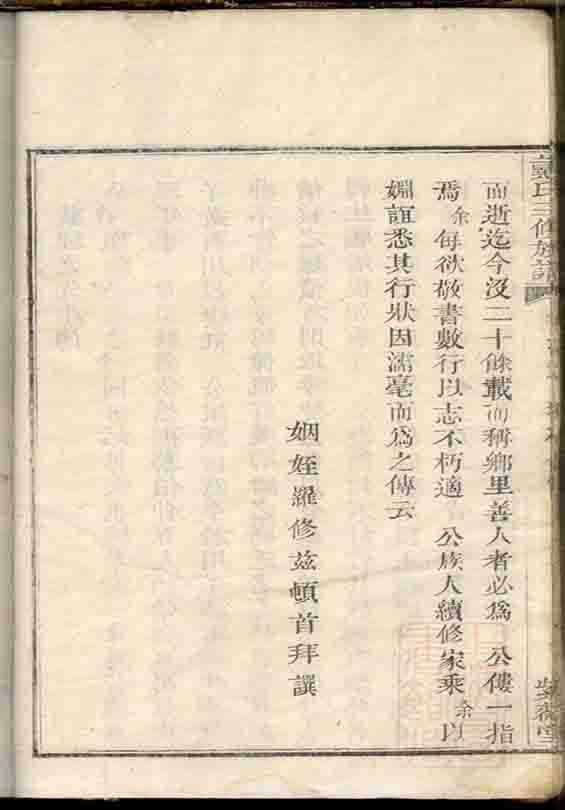 而逝迄今沒二十餘載而稱鄉里善人者必為 公僂一指
焉余每欲敬書數行以志不朽適 公族人續修家乘余以
姻誼悉其行狀因濡毫而為之傳云
姻姪羅修茲頓首拜譔
氏三修族譜